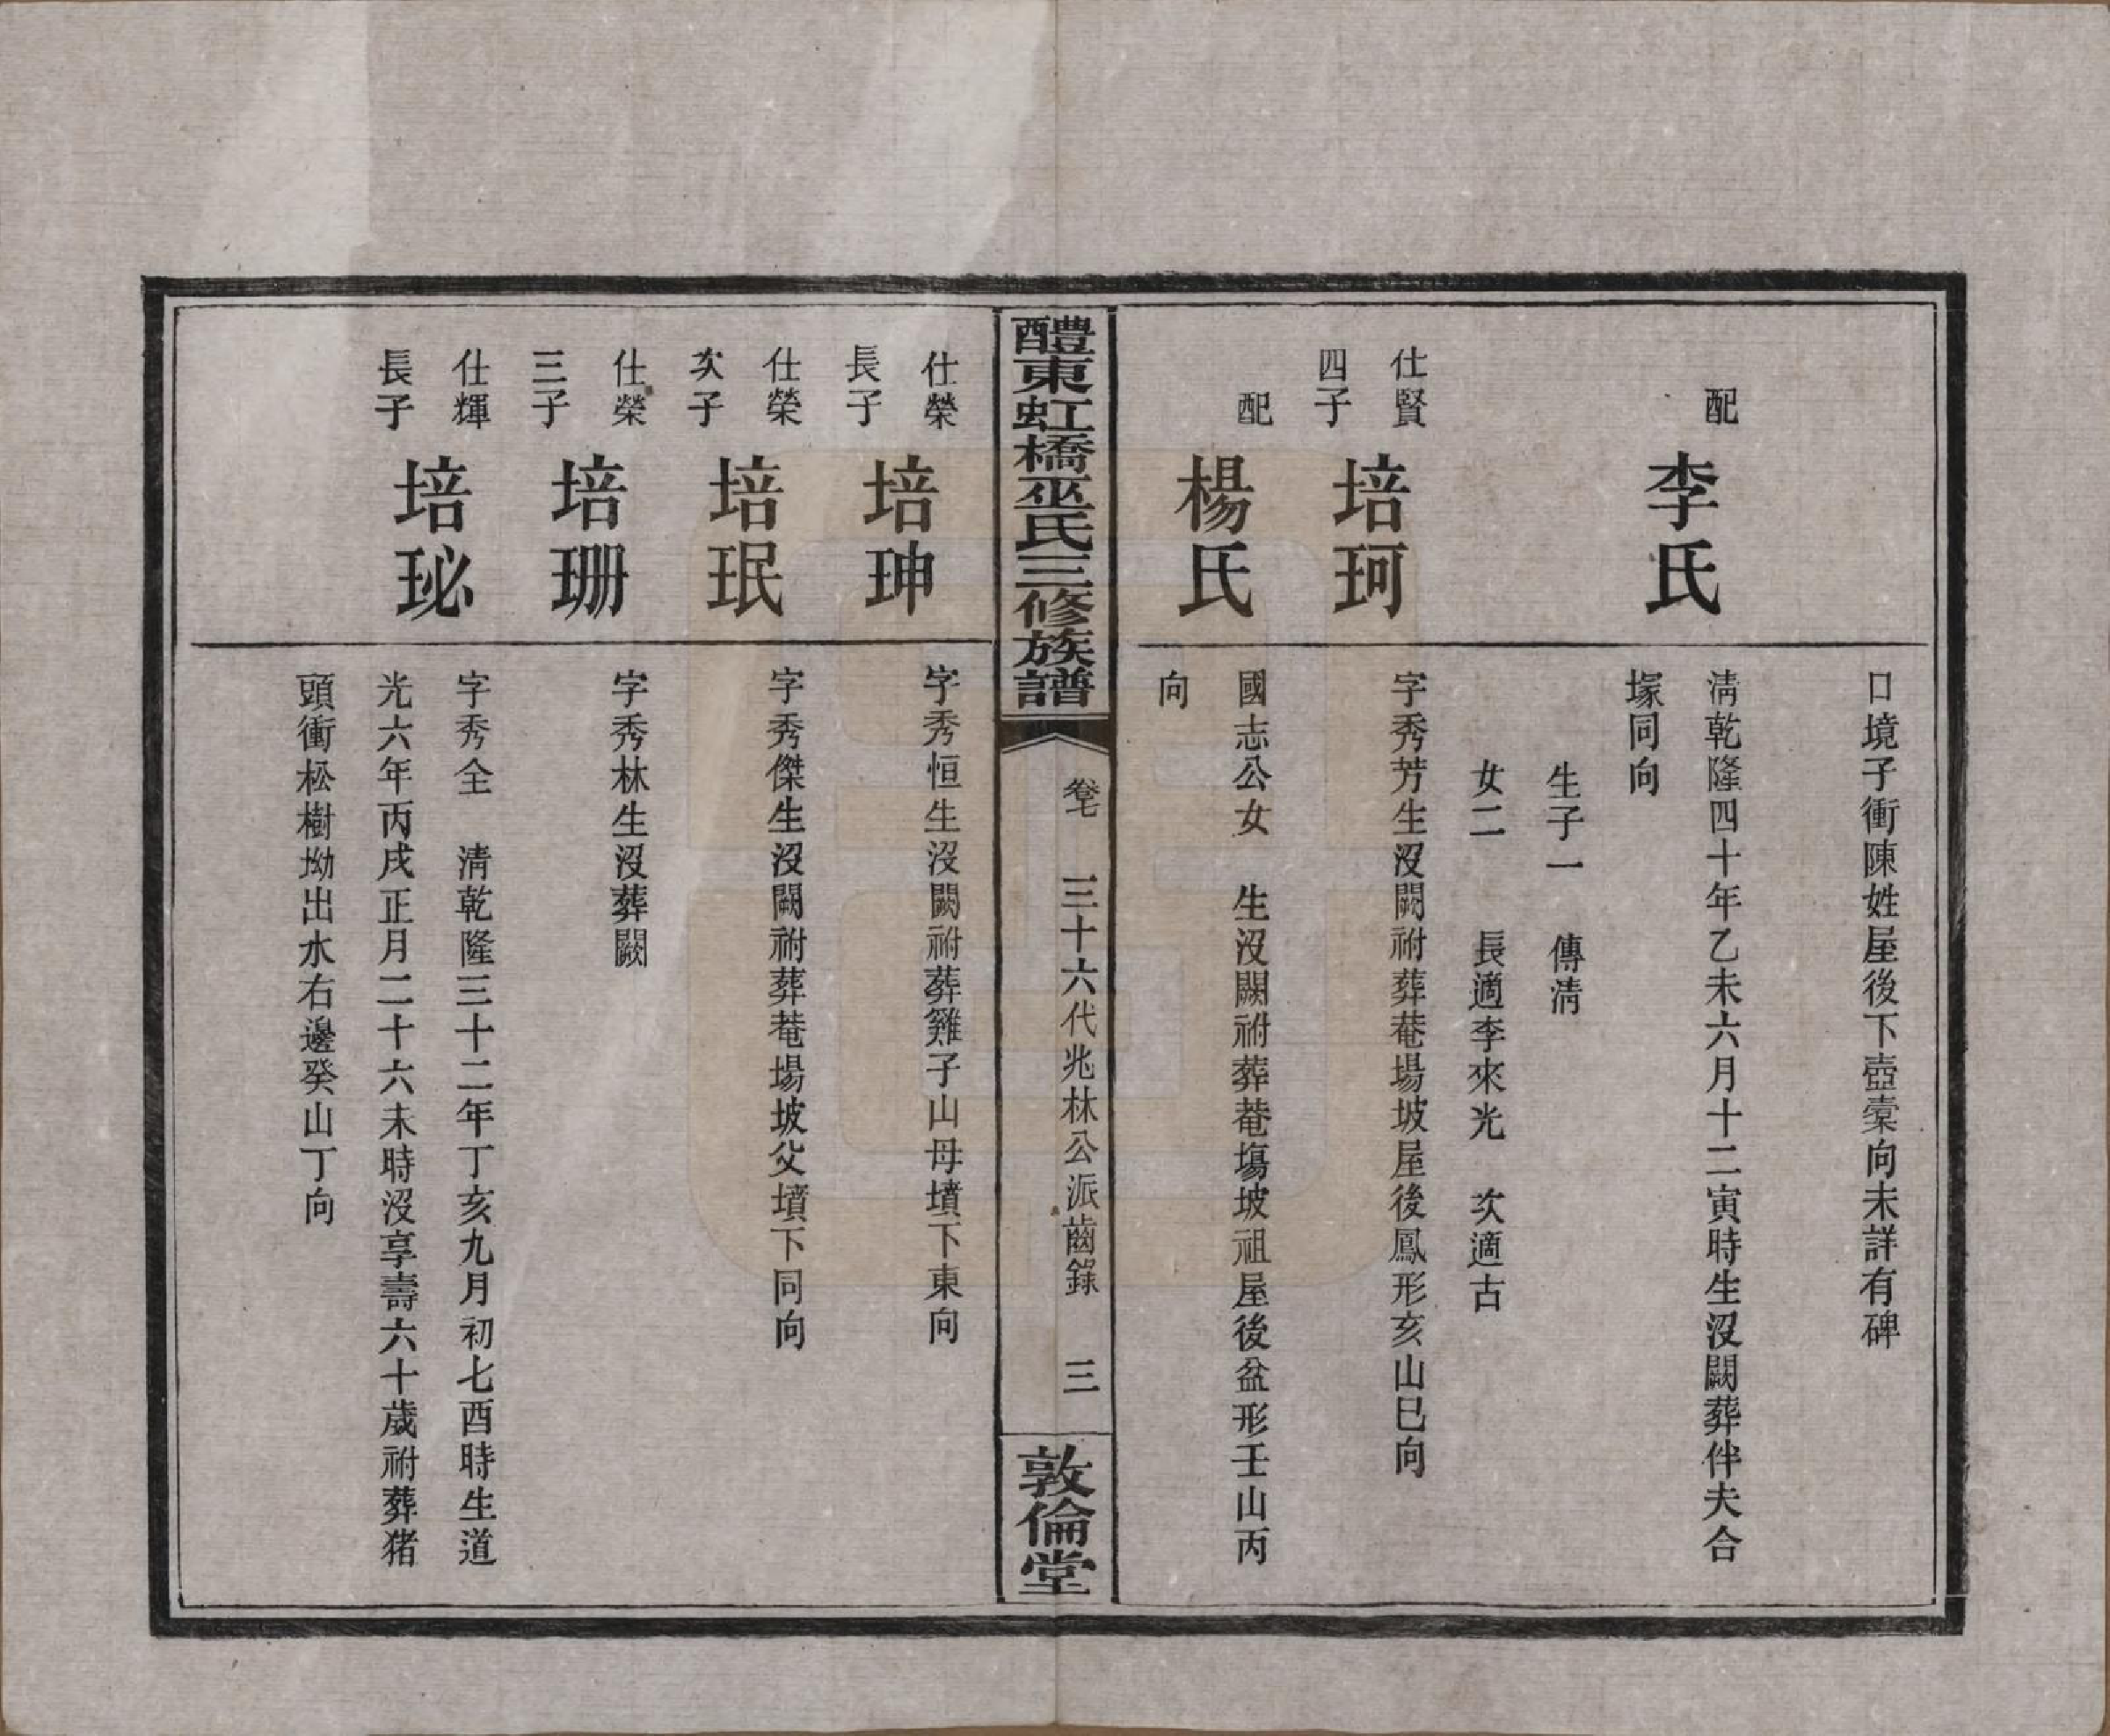 口境子衝陳姓屋後下壺橐向未詳有碑
配
李氏
清乾隆四十年乙未六月十二寅時生沒闕葬伴夫合
塚同向
生子一　傳清
女二　長適李來光　次適古
仕賢
四子
培珂
字秀芳生沒闕祔葬菴場坡屋後鳳形亥山巳向
配
楊氏
國志公女　生沒闕祔葬菴塲坡祖屋後盆形壬山丙
向
醴東虹橋巫氏三修族譜
卷七
三十六代兆林公派齒錄　三
敦倫堂
仕榮
長子
培珅
字秀恒生沒闕祔葬雞子山母墳下東向
仕榮
次子
培珉
字秀傑生沒闕祔葬菴場坡父墳下同向
仕榮
三子
培珊
字秀林生沒葬闕
仕輝
長子
培珌
字秀全　清乾隆三十二年丁亥九月初七酉時生道
光六年丙戌正月二十六未時沒享壽六十歲祔葬猪
頭衝松樹坳出水右邊癸山丁向